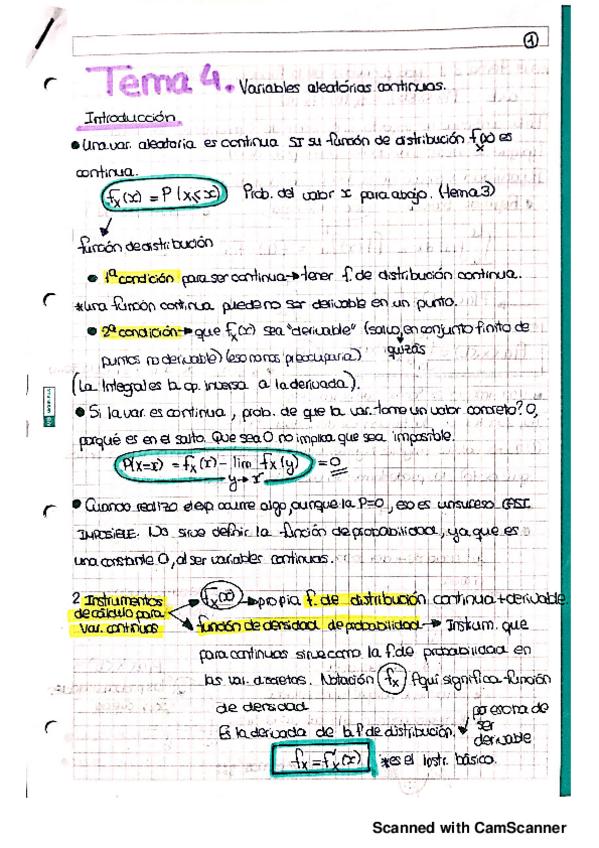 1
Tema 4. Variables aleatorias continuas.
Introducción
• Una var. aleatoria es continua SI su función de distribución fx(x) es
continua.
fx(x) = P(X≤x) Prob. del valor x para abajo. (tema 3)
función de distribución
• 1ª condición para ser continua → tener f. de distribución continua.
*una función continua puede no ser derivable en un punto.
• 2ª condición → que fx(x) sea "derivable" (salvo, en conjunto finito de
quizás
puntos no derivable) (eso no nos preocuparía)
(La Integral es la op. inversa a la derivada).
• Si la var. es continua, prob. de que la var. tome un valor concreto? 0,
porqué es en el salto. Que sea 0 no implica que sea imposible.
P(X=x) = fx(x) - lim fx(y) = 0
y→x⁻
• Cuando realizo el exp ocurre algo, aunque la P=0, eso es un suceso CASI
IMPOSIBLE. No sirve definir la función de probabilidad, ya que es
una constante 0, al ser variables continuas.
2 Instrumentos
de cálculo para
var. continuas
fx(x) → propia f. de distribución continua + derivable.
función de densidad de probabilidad → Instrum. que
para continuas sirve como la f. de probabilidad en
las var. discretas. Notación fx Aquí significa función
de densidad
Es la derivada de la f de distribución.
por eso ha de
ser
derivable
fx = f'x(x) *es el instr. básico.
Scanned with CamScanner